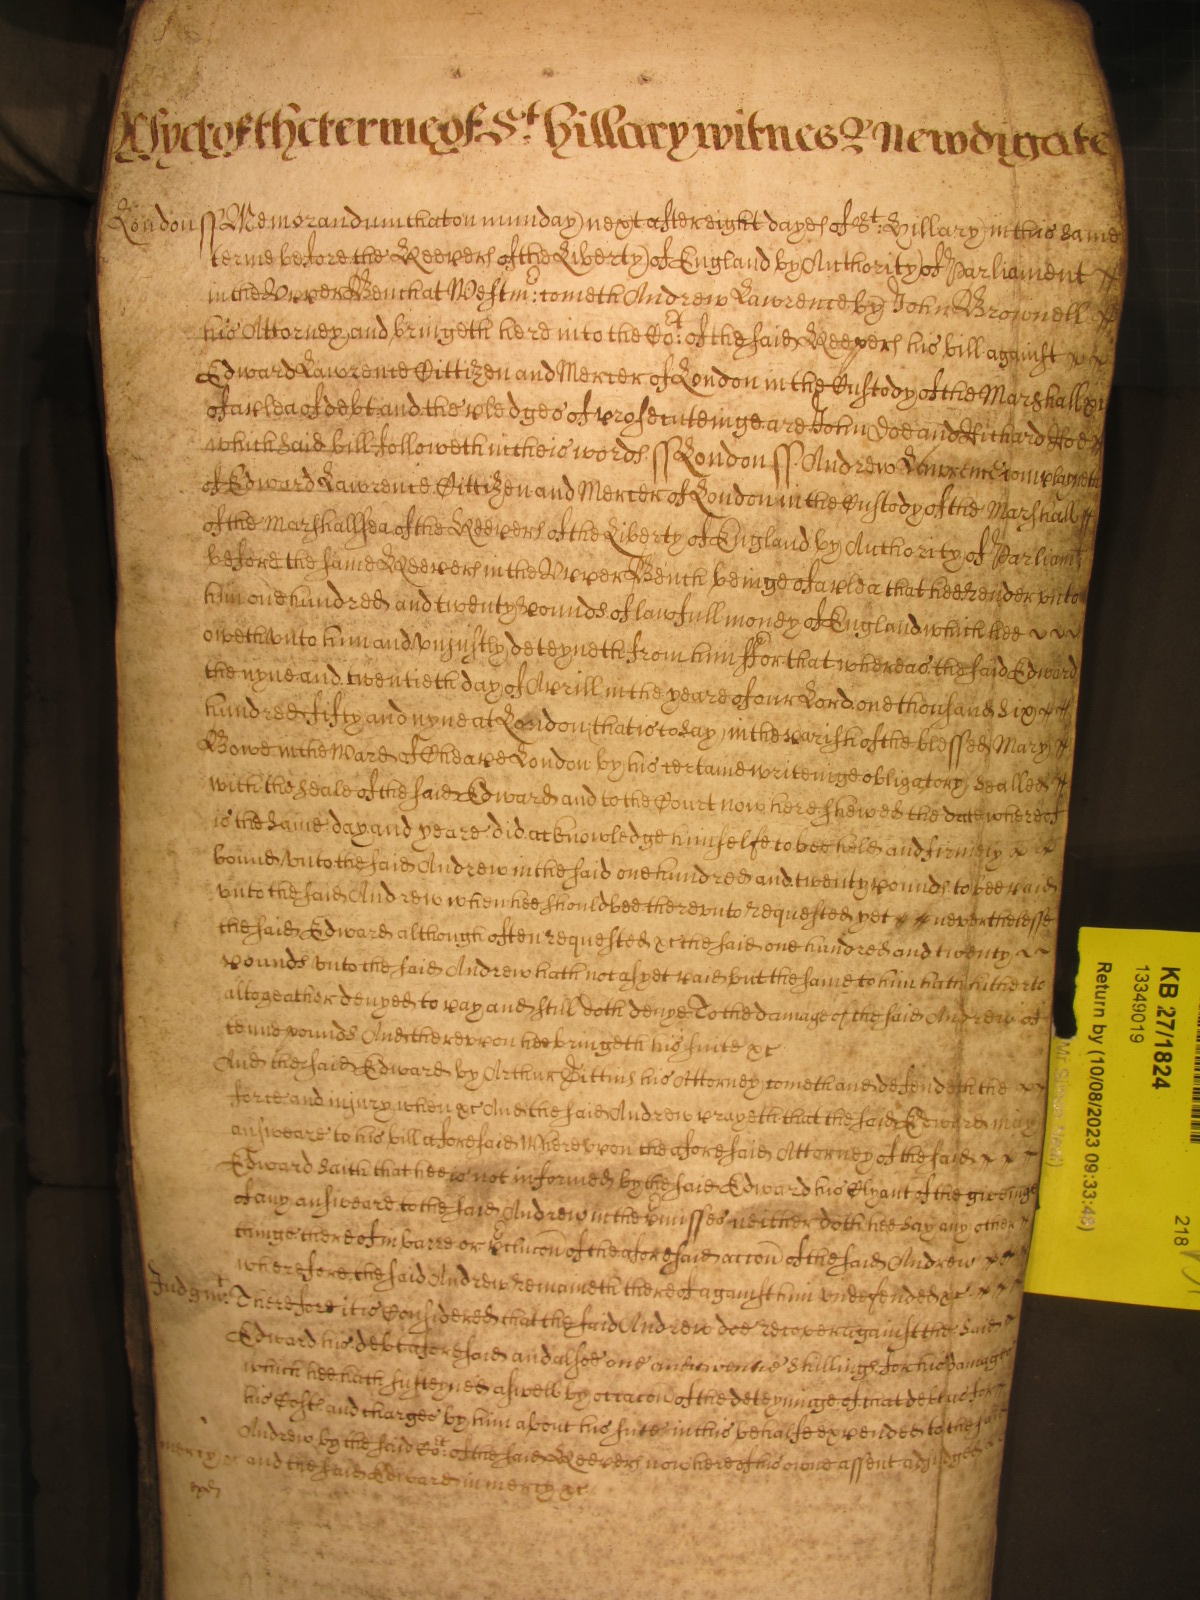 Yet of the terme of St. Hillary witnes R Newdigate
London ss Memorandum that on munday next after eight dayes of St. Hillary in this same
terme before the Keepers of the Liberty of England by Authority of Parliament
in the Upper Bench at Westmr. cometh Andrew Lawrence by John Brownell
his Attorney and bringeth here into the Cort. of the said Keepers his bill against
Edward Lawrence Cittizen and Mercer of London in the Custody of the Marshall &c
of a plea of debt and the pledges of prosecuteinge are John Doe and Richard Roe
which said bill followeth in theis words ss London ss. Andrew Lawrence complayneth
of Edward Lawrence Cittizen and Mercer of London in the Custody of the Marshall
of the Marshallsea of the Keepers of the Liberty of England by Authority of Parliamt
before the same Keepers in the Upper Bench beinge of a plea that hee render unto
him one hundred and twenty pounds of lawfull money of England which hee
oweth unto him and unjustly deteyneth from him ffor that whereas the said Edward
the nyne and twentieth day of Aprill in the yeare of our Lord one thousand six
hundred fifty and nyne at London that is to say in the parish of the blessed Mary
Bowe in the Ward of Cheape London by his certaine writeinge obligatory sealled
with the seale of the said Edward and to the Court now here shewed the date whereof
is the same day and yeare did acknowledge himselfe to bee held and firmely
bound unto the said Andrew in the said one hundred and twenty pounds to bee paid
unto the said Andrew when hee should bee thereunto requested yet neverthelesse
the said Edward although often requested &c the said one hundred and twenty
pounds unto the said Andrew hath not as yet paid but the same to him hath hitherto
altogeather denyed to pay and still doth denye To the damage of the said Andrew of
tenne pounds And thereupon hee bringeth his suite &c
And the said Edward by Arthur Dittins his Attorney cometh and defendeth the
force and injury when &c And the said Andrew prayeth that the said Edward may
answeare to his bill aforesaid Whereupon the aforesaid Attorney of the said
Edward saith that hee is not informed by the said Edward his Clyant of the giveinge
of any answeare to the said Andrew in the pmisses neither doth hee say any other
thinge thereof in barre or pclucon of the aforesaid accon of the said Andrew
wherefore the said Andrew remaineth thereof against him undefended &c
Judgmt. Therefore it is Considered that the said Andrew doe recover against the said
Edward his debt aforesaid and alsoe one and twentie shillings for his damages
which hee hath susteyned aswell by occacon of the deteyninge of that debt as for
his Costs and charges by him about his suite in this behalfe expended to the said
Andrew by the said Cort. of the said Keepers now here of his owne assent adjudged
mercy &c and the said Edward in mercy &c
KB 27/1824
13349019
218
Return by (10/08/2023 09:33:48)